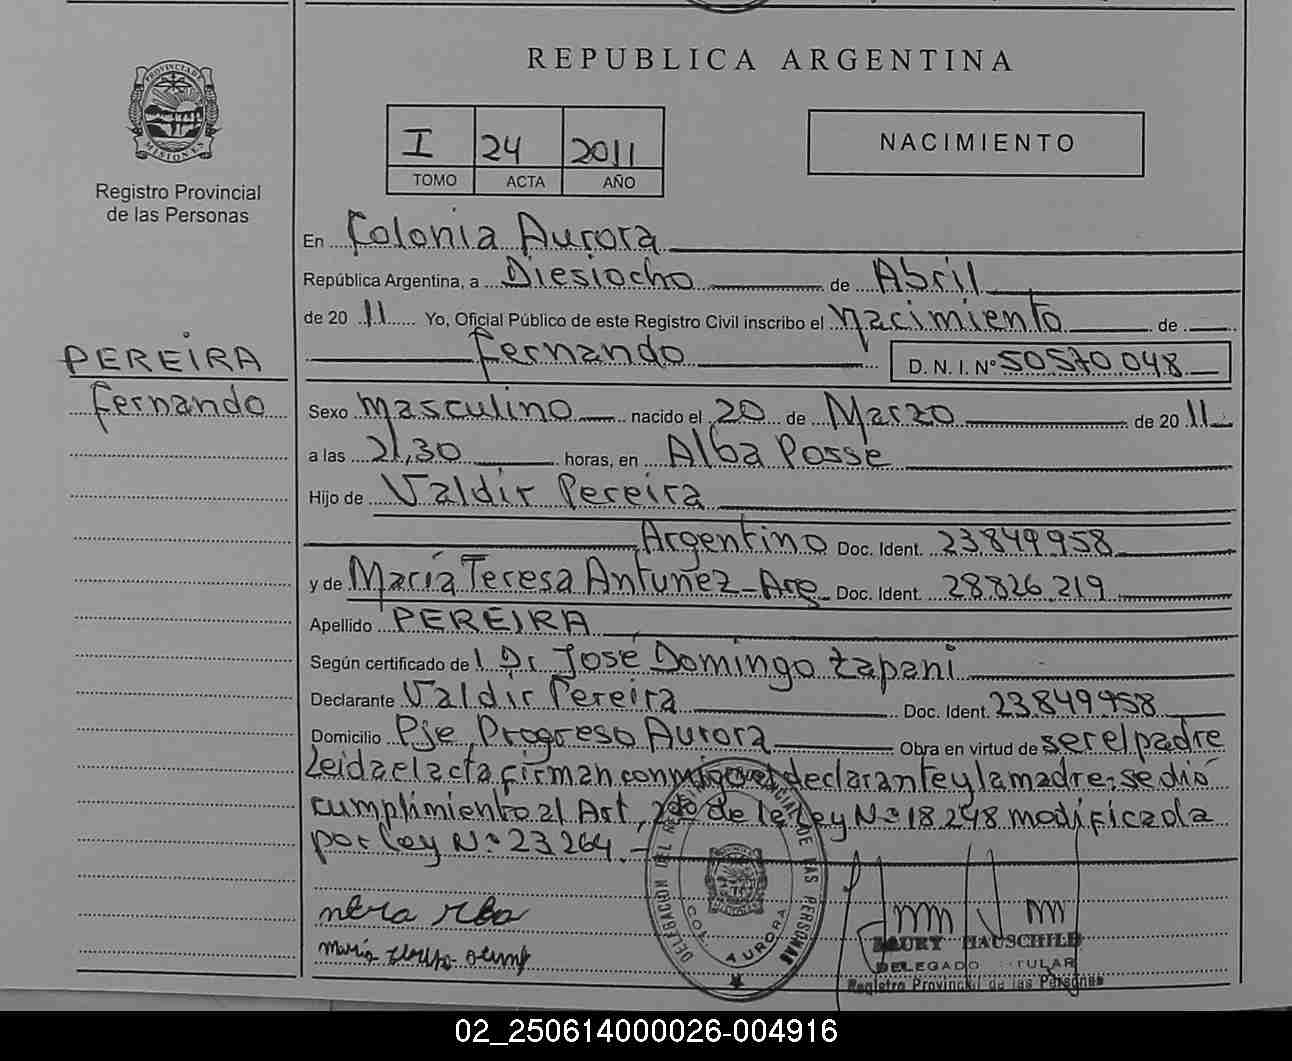 REPUBLICA ARGENTINA
PROVINCIA DE
MISIONES
Registro Provincial
de las Personas
I 24 2011
TOMO ACTA AÑO
NACIMIENTO
En Colonia Aurora
República Argentina, a Diesiocho de Abril
de 20 11 Yo, Oficial Público de este Registro Civil inscribo el Nacimiento de
Fernando D. N. I. Nº 50.570.048
PEREIRA
Fernando
Sexo Masculino nacido el 20 de Marzo de 20 11
a las 21,30 horas, en Alba Posse
Hijo de Valdir Pereira
Argentino Doc. Ident. 23.849.958
y de María Teresa Antunez - Arg Doc. Ident. 28.826.219
Apellido PEREIRA
Según certificado de Dr José Domingo Zapani
Declarante Valdir Pereira Doc. Ident. 23.849.958
Domicilio Pje Progreso Aurora Obra en virtud de ser el padre
Leida el acta firman conmigo el declarante y la madre: se dió
cumplimiento al Art, de le Ley Nº 18.248 modificada
por Ley Nº 23.264.-
DELEGACIÓN DEL REGISTRO PROVINCIAL DE LAS PERSONAS
COL. AURORA
HAUSCHILD
DELEGADO TITULAR
Registro Provincial de las Personas
02_250614000026-004916